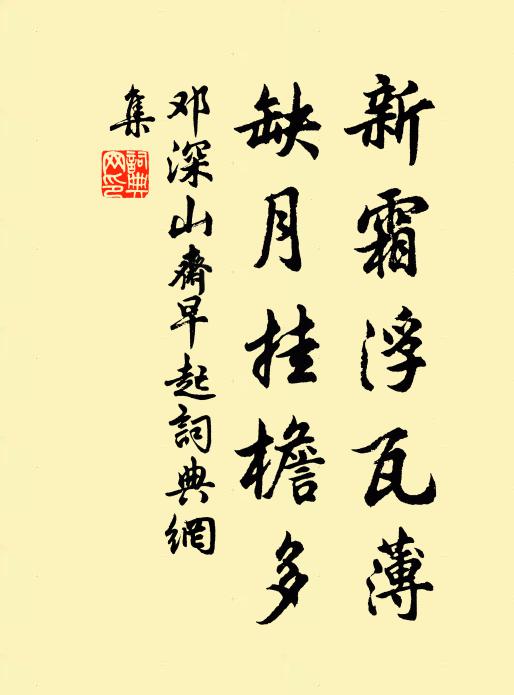 新霜浮瓦薄
缺月挂檐多
邓深山斋早起詞典網
集
詞典
网印